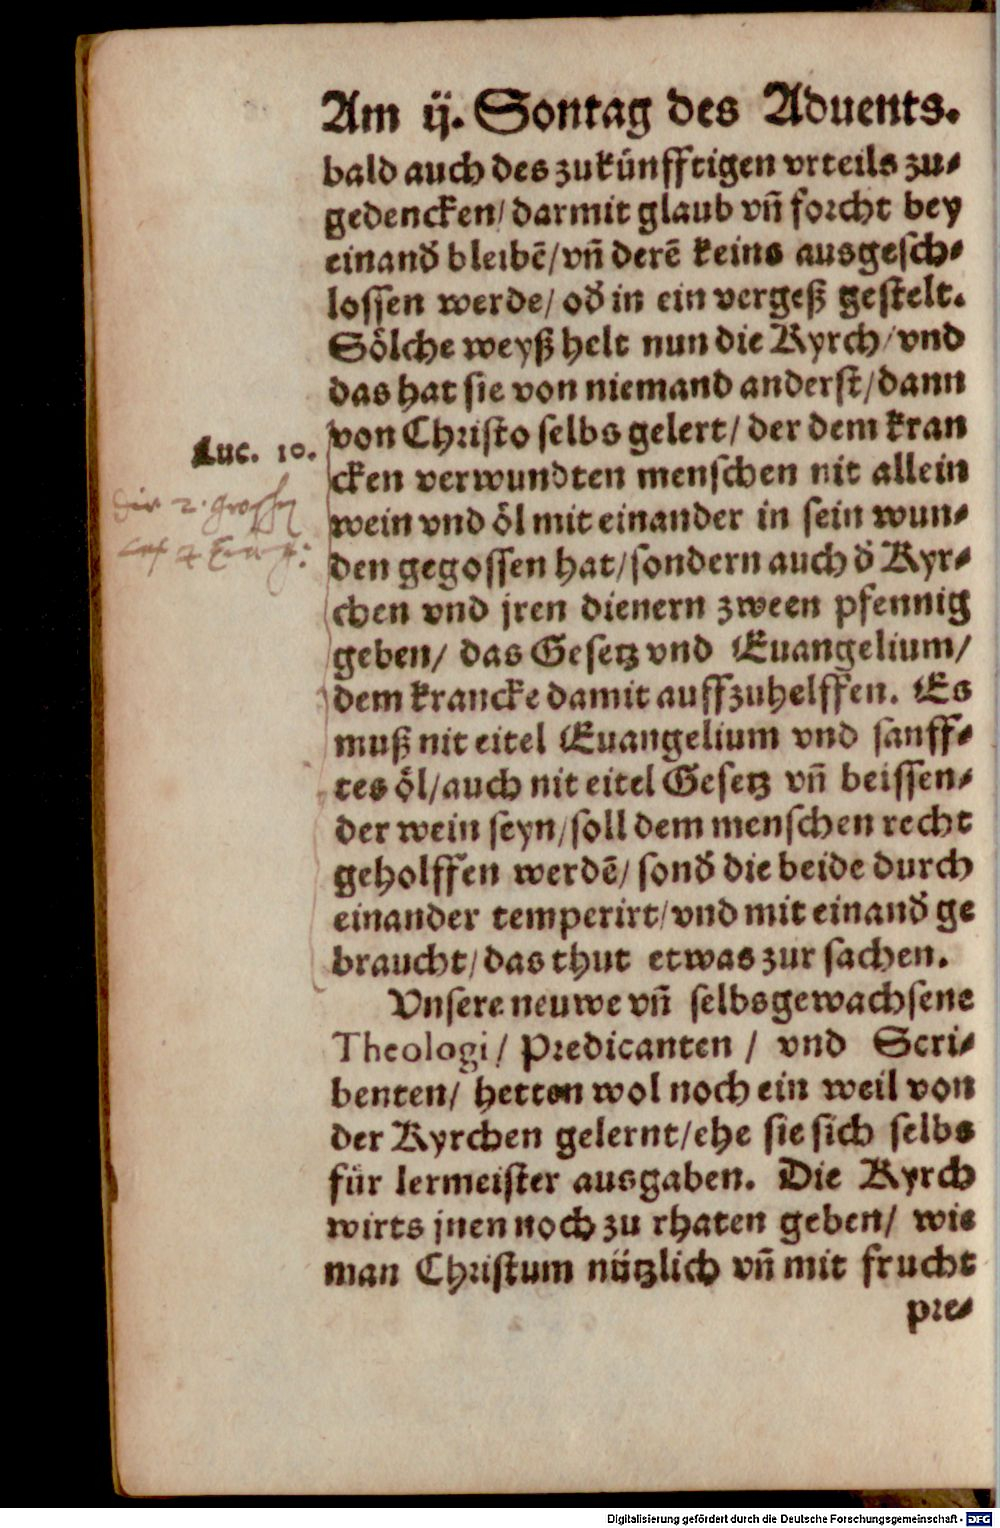 Am ij. Sontag des Aduents.
bald auch des zukünfftigen vrteils zu⸗
gedencken/ darmit glaub vñ forcht bey
einand̄ bleibē/ vñ derē keins ausgesch⸗
lossen werde/ od̄ in ein vergeß gestelt.
Sölche weyß helt nun die Kyrch/ vnd
das hat sie von niemand anderst/ dann
von Christo selbs gelert/ der dem kran
Luc. 10.
cken verwundten menschen nit allein
wein vnd öl mit einander in sein wun⸗
den gegossen hat/ sondern auch d̄ Kyr⸗
chen vnd jren dienern zween pfennig
geben/ das Gesetz vnd Euangelium/
dem krancke damit auffzuhelffen. Es
muß nit eitel Euangelium vnd sanff⸗
tes öl/ auch nit eitel Gesetz vñ beissen⸗
der wein seyn/ soll dem menschen recht
geholffen werdē/ sond̄ die beide durch
einander temperirt/ vnd mit einand̄ ge
braucht/ das thut etwas zur sachen.
Vnsere neuwe vñ selbsgewachsene
Theologi/ Predicanten / vnd Scri⸗
benten/ hetten wol noch ein weil von
der Kyrchen gelernt/ ehe sie sich selbs
für lermeister ausgaben. Die Kyrch
wirts jnen noch zu rhaten geben/ wie
man Christum nützlich vñ mit frucht
pre⸗
die 2. groschen
Digitalisierung gefördert durch die Deutsche Forschungsgemeinschaft - DFG